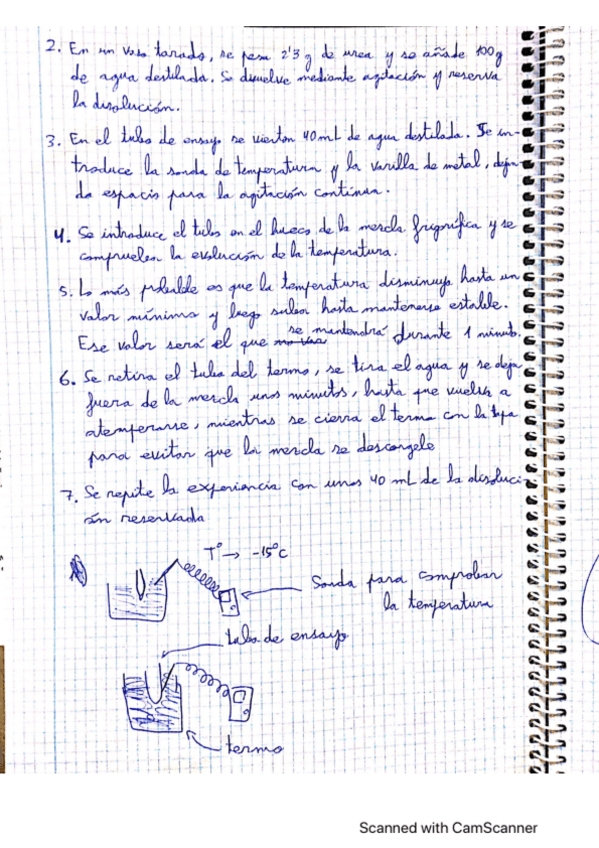 2. En un vaso tarado, se pesa 2'3 g de urea y se añade 100g
de agua destilada. Se disuelve mediante agitación y reserva
la disolución.
3. En el tubo de ensayo se vierten 40mL de agua destilada. Se in-
troduce la sonda de temperatura y la varilla de metal, dejan
do espacio para la agitación continua.
4. Se introduce el tubo en el hueco de la mezcla frigorífica y se
comprueba la evolución de la temperatura.
5. Lo más probable es que la temperatura disminuya hasta un
valor mínimo y luego suba hasta mantenerse estable.
Ese valor será el que se mantendrá durante 1 minuto.
6. Se retira el tubo del termo, se tira el agua y se deja
fuera de la mezcla unos minutos, hasta que vuelva a
atemperarse, mientras se cierra el termo con la tapa
para evitar que la mezcla se descongele
7. Se repite la experiencia con unos 40 mL de la disoluci-
ón reservada
Tº → -15ºC
Sonda para comprobar
la temperatura
tubo de ensayo
termo
Scanned with CamScanner